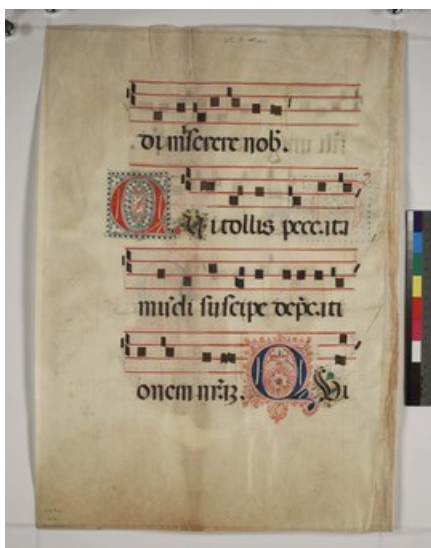 di miserere nob.
Qui tollis peccata
mūdi suscipe dep̄cati
onem nr̄aȝ. Qui